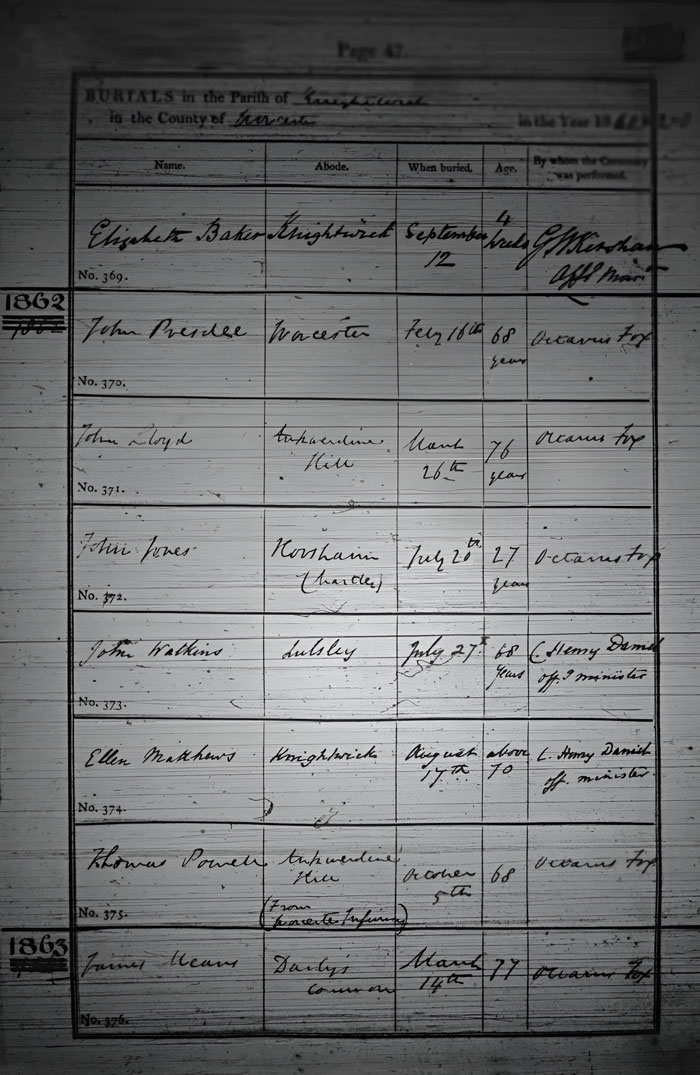 Page 47.
BURIALS in the Parish of Knightwick
In the County of Worcester in the Year 18
Name. Abode. When buried. Age. By whom the Ceremony was performed.
Elizabeth Baker Knightwick September 12 4 weeks G W Kershaw
Offg Minr
No. 369.
1862
John Presdee Worcester Feby 16th 68 years Octavius Fox
No. 370.
John Lloyd Ankerdine Hill March 26th 76 years Octavius Fox
No. 371.
John Jones Horsham July 20th 27 years Octavius Fox
No. 372.
John Watkins Lulsley July 27 68 years C. Henry Daniel
off. minister
No. 373.
Ellen Matthews Knightwick August 17th above 70 C. Henry Daniel
off. minister
No. 374.
Thomas Powell Ankerdine Hill October 5th 68 Octavius Fox
(From Worcester Infirmary)
No. 375.
1863
James Means Darby's common March 14th 77 Octavius Fox
No. 376.